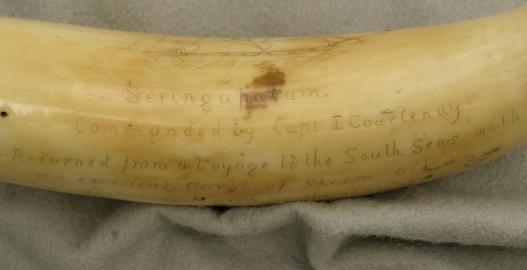 Seringapatam.
Commanded by Capt E Courtenay
Returned from a Voyage to the South Seas with
an excellent Cargo of Sperm